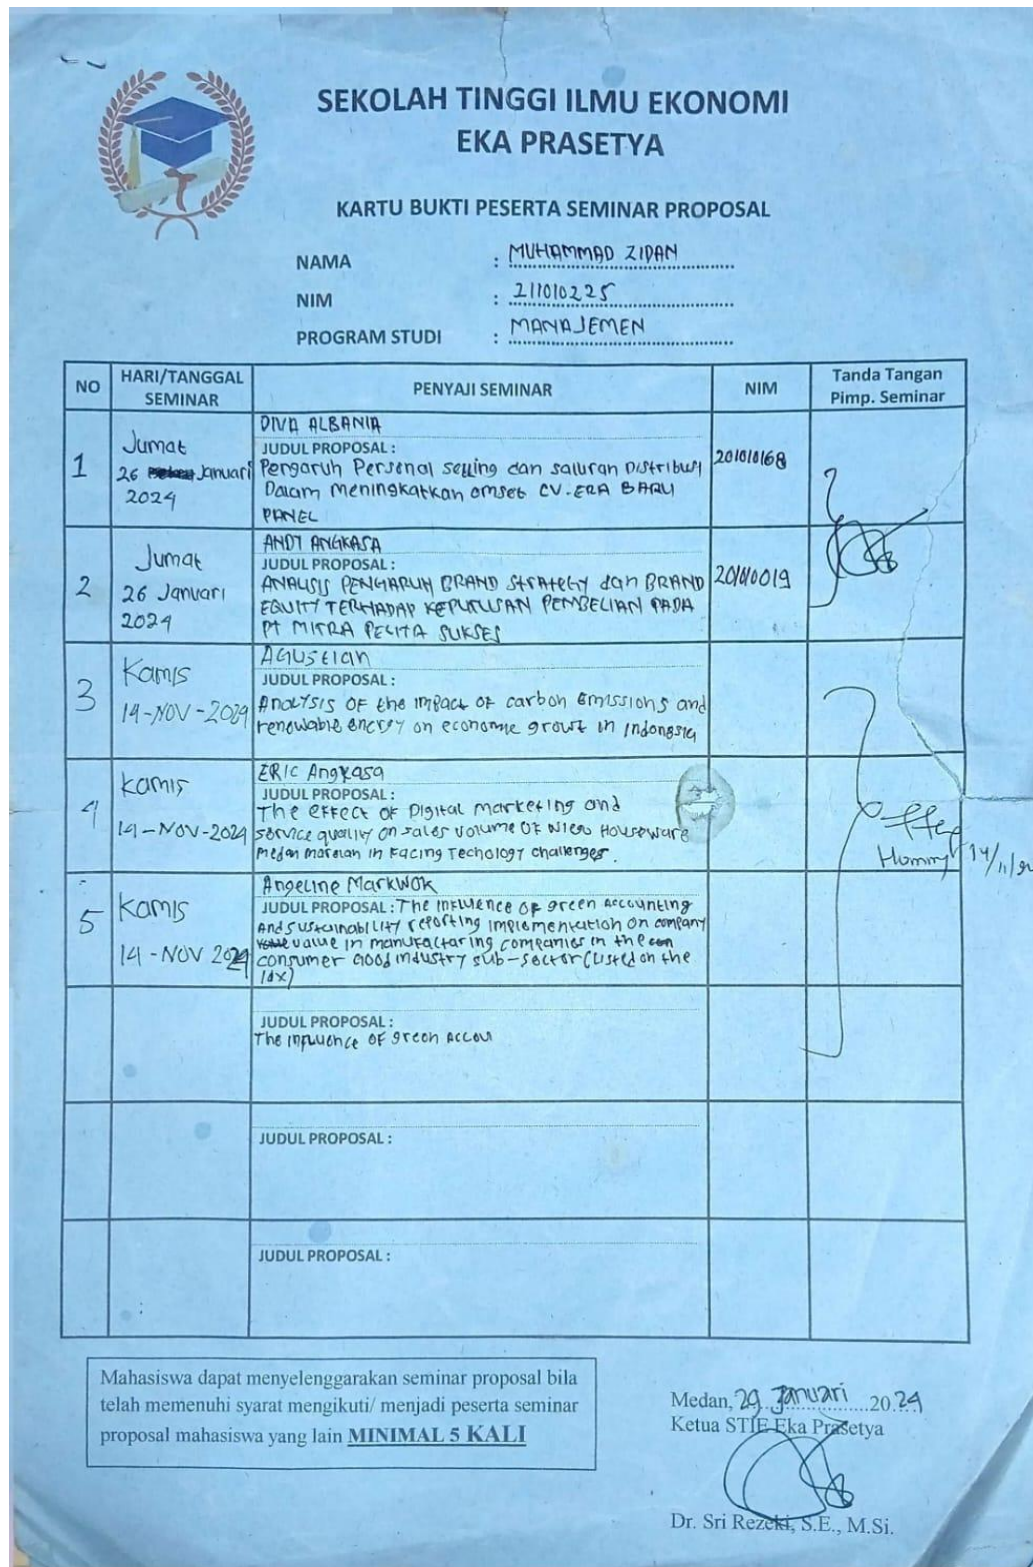 SEKOLAH TINGGI ILMU EKONOMI
EKA PRASETYA
KARTU BUKTI PESERTA SEMINAR PROPOSAL
NAMA : MUHAMMAD ZIDAN
NIM : 211010225
PROGRAM STUDI : MANAJEMEN
NO HARI/TANGGAL SEMINAR PENYAJI SEMINAR NIM Tanda Tangan Pimp. Seminar
1
Jumat
26 Januari
2024
DIVA ALBANIA
JUDUL PROPOSAL :
Pengaruh Personal selling dan saluran Distribusi
Dalam meningkatkan omset CV. ERA BARU
PANEL
201010168
2
Jumat
26 Januari
2024
ANDY ANGKASA
JUDUL PROPOSAL :
ANALISIS PENGARUH BRAND Strategy dan BRAND
EQUITY TERHADAP KEPUTUSAN PEMBELIAN PADA
PT MITRA PELITA SUKSES
201010019
3
Kamis
14-NOV-2024
Agustian
JUDUL PROPOSAL :
Analysis OF the impact OF carbon Emissions and
renewable energy on economic growt in Indonesia
4
Kamis
14-NOV-2024
ERIC Angkasa
JUDUL PROPOSAL :
The effect OF Digital marketing and
service quality on sales volume OF Houseware
Medan marelan in Facing Techology challenges.
Hommy 14/11/24
5
Kamis
14-NOV 2024
Angeline Markwok
JUDUL PROPOSAL : The influence OF green Accounting
And sustainability reporting implementation on company
value in manufacturing companies in the
consumer Good industry sub-sector (Listed on the
idx)
JUDUL PROPOSAL :
The influence OF green Accou
JUDUL PROPOSAL :
JUDUL PROPOSAL :
Mahasiswa dapat menyelenggarakan seminar proposal bila
telah memenuhi syarat mengikuti/ menjadi peserta seminar
proposal mahasiswa yang lain MINIMAL 5 KALI
Medan, 29 Januari 2024
Ketua STIE Eka Prasetya
Dr. Sri Rezeki, S.E., M.Si.